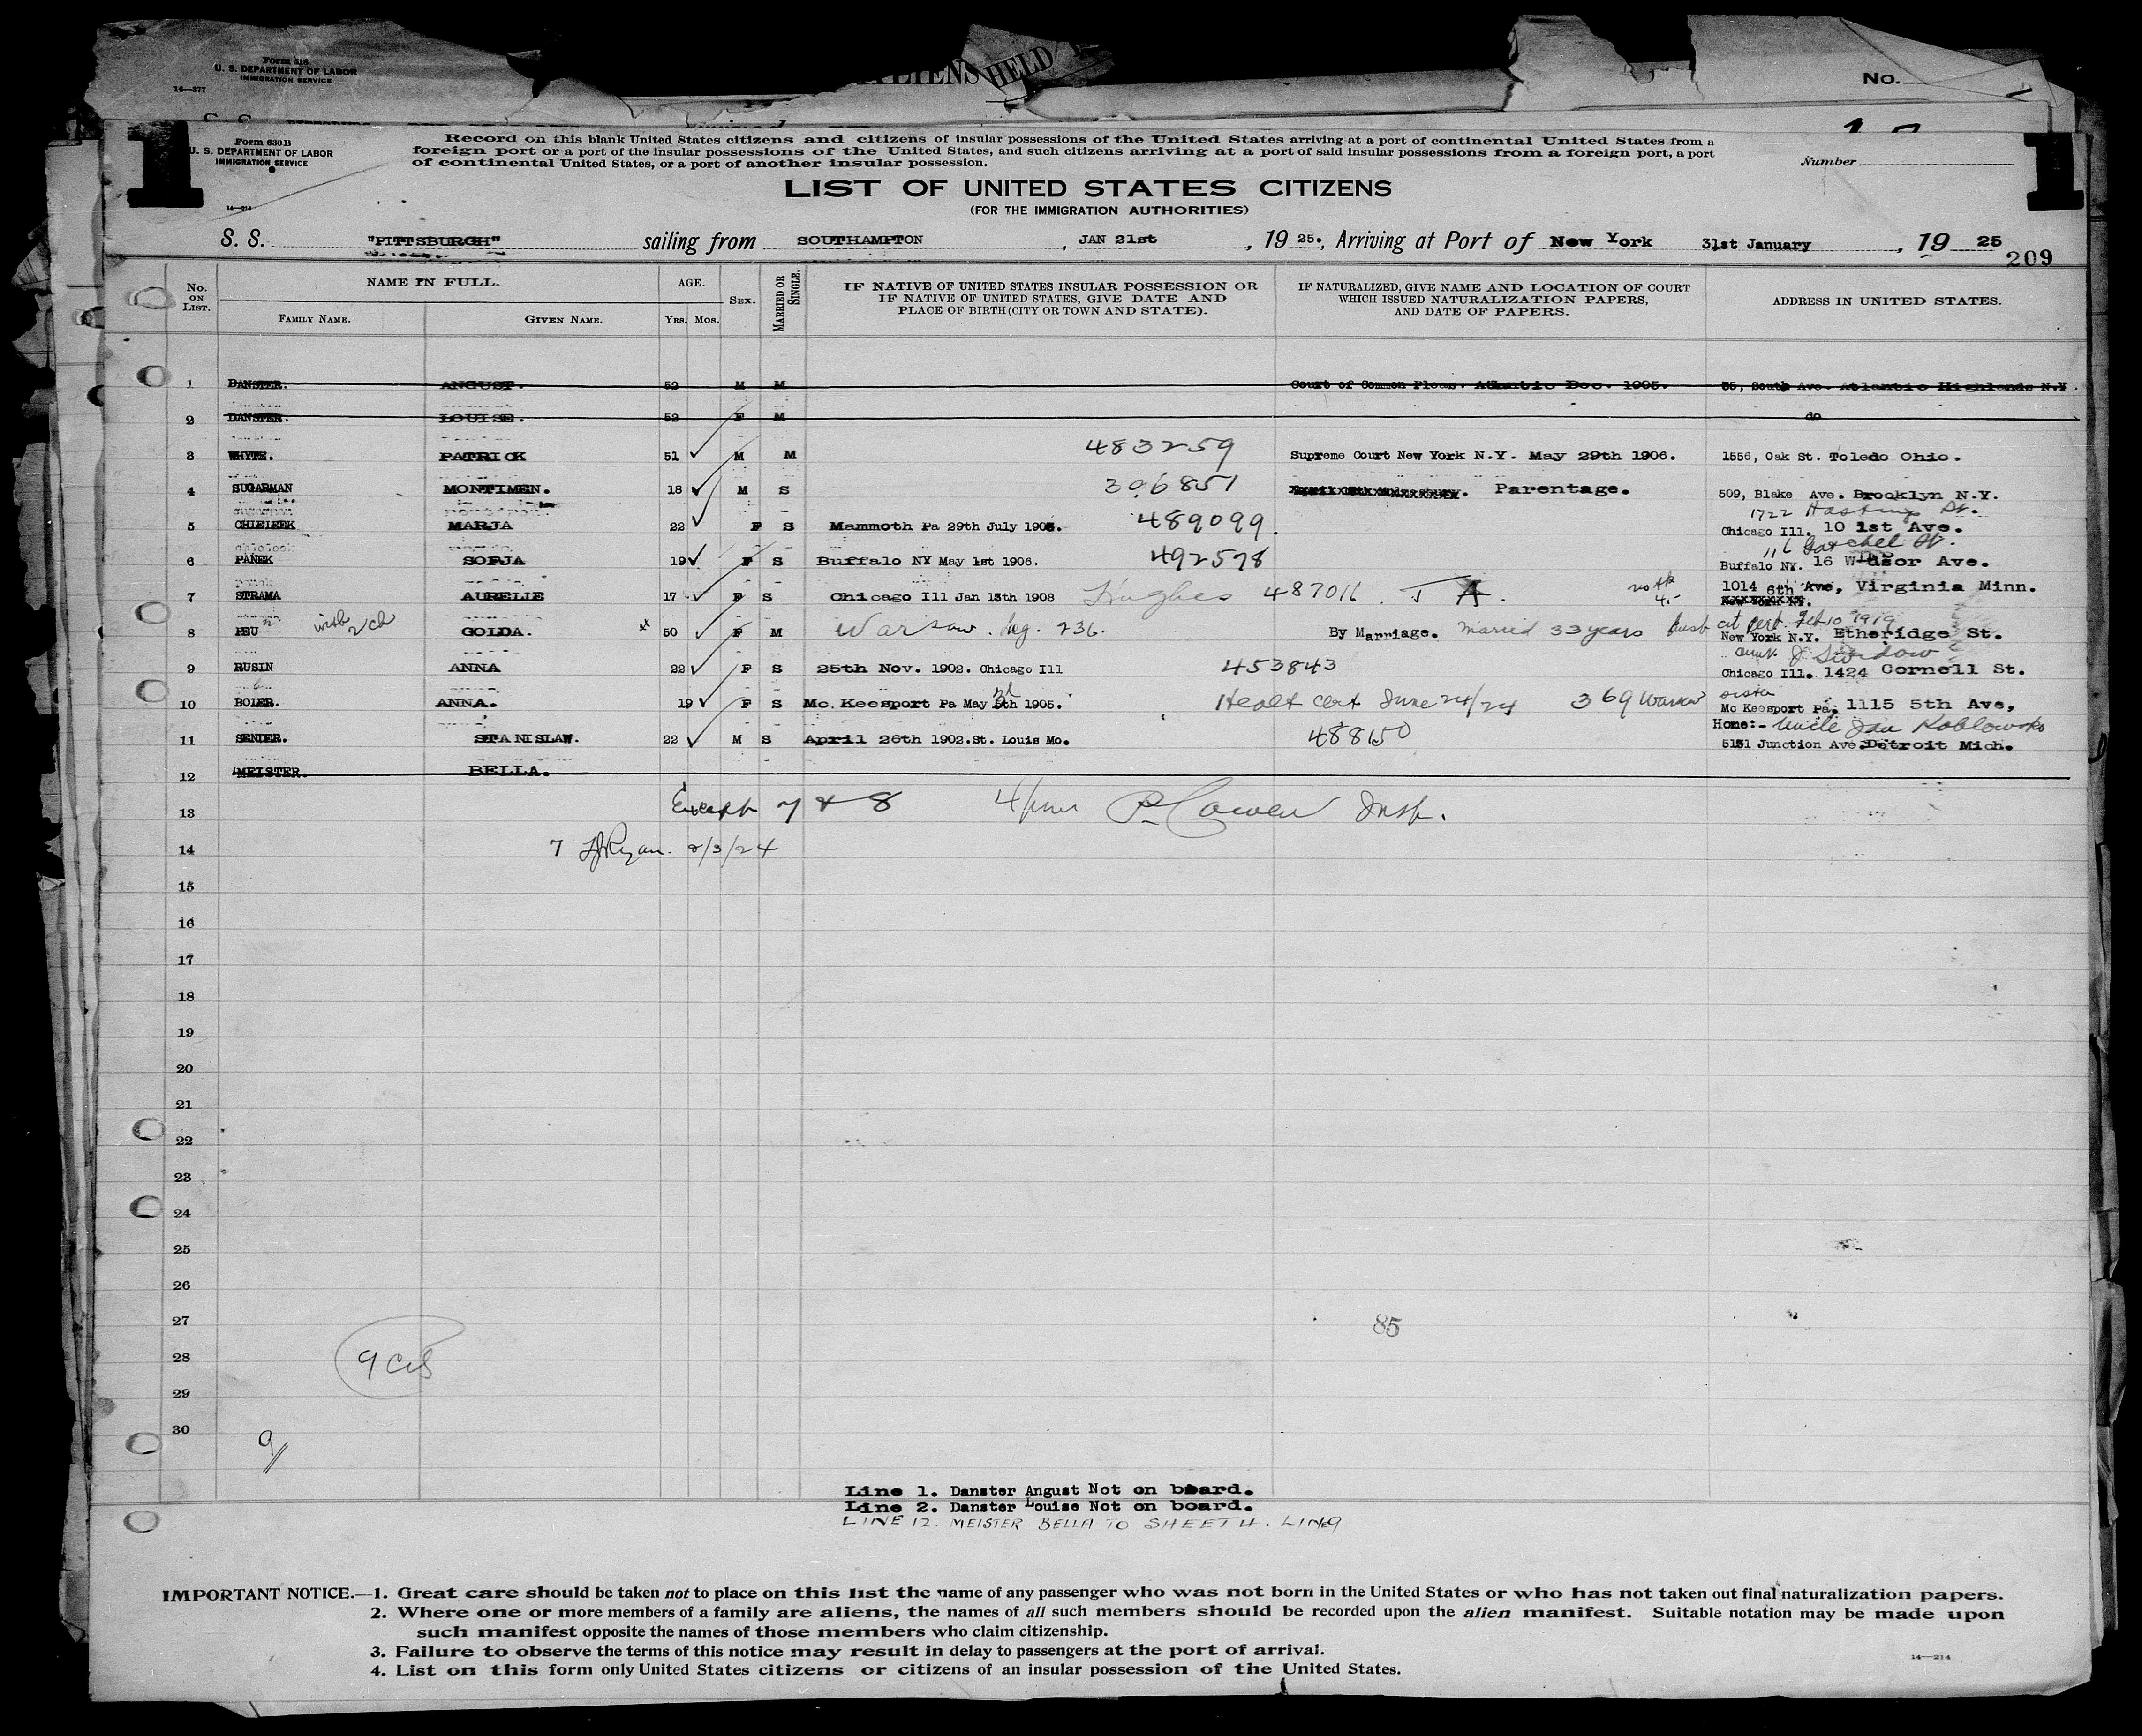 Form 316
U. S. DEPARTMENT OF LABOR
IMMIGRATION SERVICE
14—377
HELD
No.
1
Form 630 B
U. S. DEPARTMENT OF LABOR
IMMIGRATION SERVICE
14—214
Record on this blank United States citizens and citizens of insular possessions of the United States arriving at a port of continental United States from a
foreign port or a port of the insular possessions of the United States, and such citizens arriving at a port of said insular possessions from a foreign port, a port
of continental United States, or a port of another insular possession.
Number
1
LIST OF UNITED STATES CITIZENS
(FOR THE IMMIGRATION AUTHORITIES)
S. S. "PITTSBURGH" sailing from SOUTHAMPTON, JAN 21st, 19 25., Arriving at Port of New York 31st January, 19 25
209
No. ON LIST. NAME IN FULL. FAMILY NAME. GIVEN NAME. AGE. YRS. MOS. SEX. MARRIED OR SINGLE. IF NATIVE OF UNITED STATES INSULAR POSSESSION OR IF NATIVE OF UNITED STATES, GIVE DATE AND PLACE OF BIRTH (CITY OR TOWN AND STATE). IF NATURALIZED, GIVE NAME AND LOCATION OF COURT WHICH ISSUED NATURALIZATION PAPERS, AND DATE OF PAPERS. ADDRESS IN UNITED STATES.
1 DANSTER. ANGUST. 52 M M Court of Common Pleas. Atlantic Dec. 1905. 35, South Ave. Atlantic Highlands N.Y.
2 DANSTER. LOUISE. 52 F M do
3 WHYTE. PATRICK 51 M M 483259 Supreme Court New York N.Y. May 29th 1906. 1556, Oak St. Toledo Ohio.
4 SUGARMAN MONTIMEN. 18 M S 306851 Parentage. 509, Blake Ave. Brooklyn N.Y.
1722 Hastings St.
5 CHLELEEK MARJA 22 F S Mammoth Pa 29th July 1903. 489099. Chicago Ill. 10 1st Ave.
116 Gatchel St.
6 PANEK SOFJA 19 F S Buffalo NY May 1st 1906. 492578 Buffalo NY. 16 Windsor Ave.
7 STRAMA AURELIE 17 F S Chicago Ill Jan 13th 1908 Hughes 487011 1014 6th Ave, Virginia Minn.
8 HEU with 2 ch GOLDA. 50 F M Warsaw. Reg. 236. By Marriage. Married 33 years husb cit cert. Feb 10 1919 New York N.Y. Etheridge St.
9 RUSIN ANNA 22 F S 25th Nov. 1902. Chicago Ill 453843 Chicago Ill. 1424 Cornell St.
sister
10 BOLER. ANNA. 19 F S Mc Keesport Pa May 5th 1905. Healt cert June 24/24 369 Warsaw Mc Keesport Pa. 1115 5th Ave,
Home:- Uncle Jan Koblowski
11 SENDER. STANISLAW. 22 M S April 26th 1902. St. Louis Mo. 488150 5131 Junction Ave. Detroit Mich.
12 MEISTER. BELLA.
13 Except 7 & 8 P. Cowen Insp.
14 7 Ryan. 2/3/24
15
16
17
18
19
20
21
22
23
24
25
26
27 85
28 9 Cits
29
30
9
Line 1. Danster Angust Not on board.
Line 2. Danster Louise Not on board.
LINE 12. MEISTER BELLA TO SHEET 4. LINE 9
IMPORTANT NOTICE.—1. Great care should be taken not to place on this list the name of any passenger who was not born in the United States or who has not taken out final naturalization papers.
2. Where one or more members of a family are aliens, the names of all such members should be recorded upon the alien manifest. Suitable notation may be made upon
such manifest opposite the names of those members who claim citizenship.
3. Failure to observe the terms of this notice may result in delay to passengers at the port of arrival.
4. List on this form only United States citizens or citizens of an insular possession of the United States.
14—214